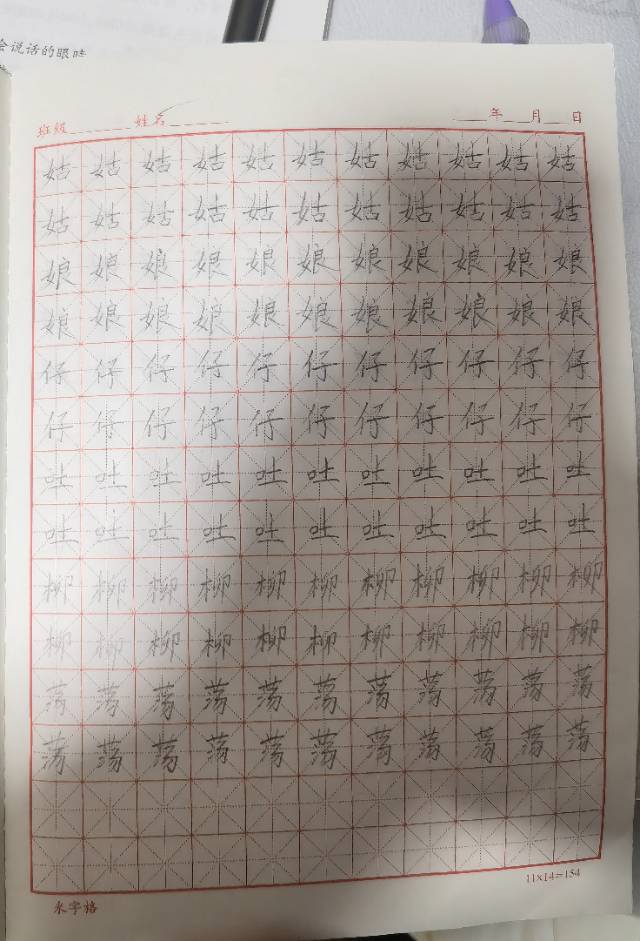 会说话的眼睛
班级 姓名 年 月 日
姑姑姑姑姑姑姑姑姑姑姑
姑姑姑姑姑姑姑姑姑姑姑
娘娘娘娘娘娘娘娘娘娘娘
娘娘娘娘娘娘娘娘娘娘娘
仔仔仔仔仔仔仔仔仔仔仔
仔仔仔仔仔仔仔仔仔仔仔
吐吐吐吐吐吐吐吐吐吐吐
吐吐吐吐吐吐吐吐吐吐吐
柳柳柳柳柳柳柳柳柳柳柳
柳柳柳柳柳柳柳柳柳柳柳
荡荡荡荡荡荡荡荡荡荡荡
荡荡荡荡荡荡荡荡荡荡荡
11×14=154
米字格